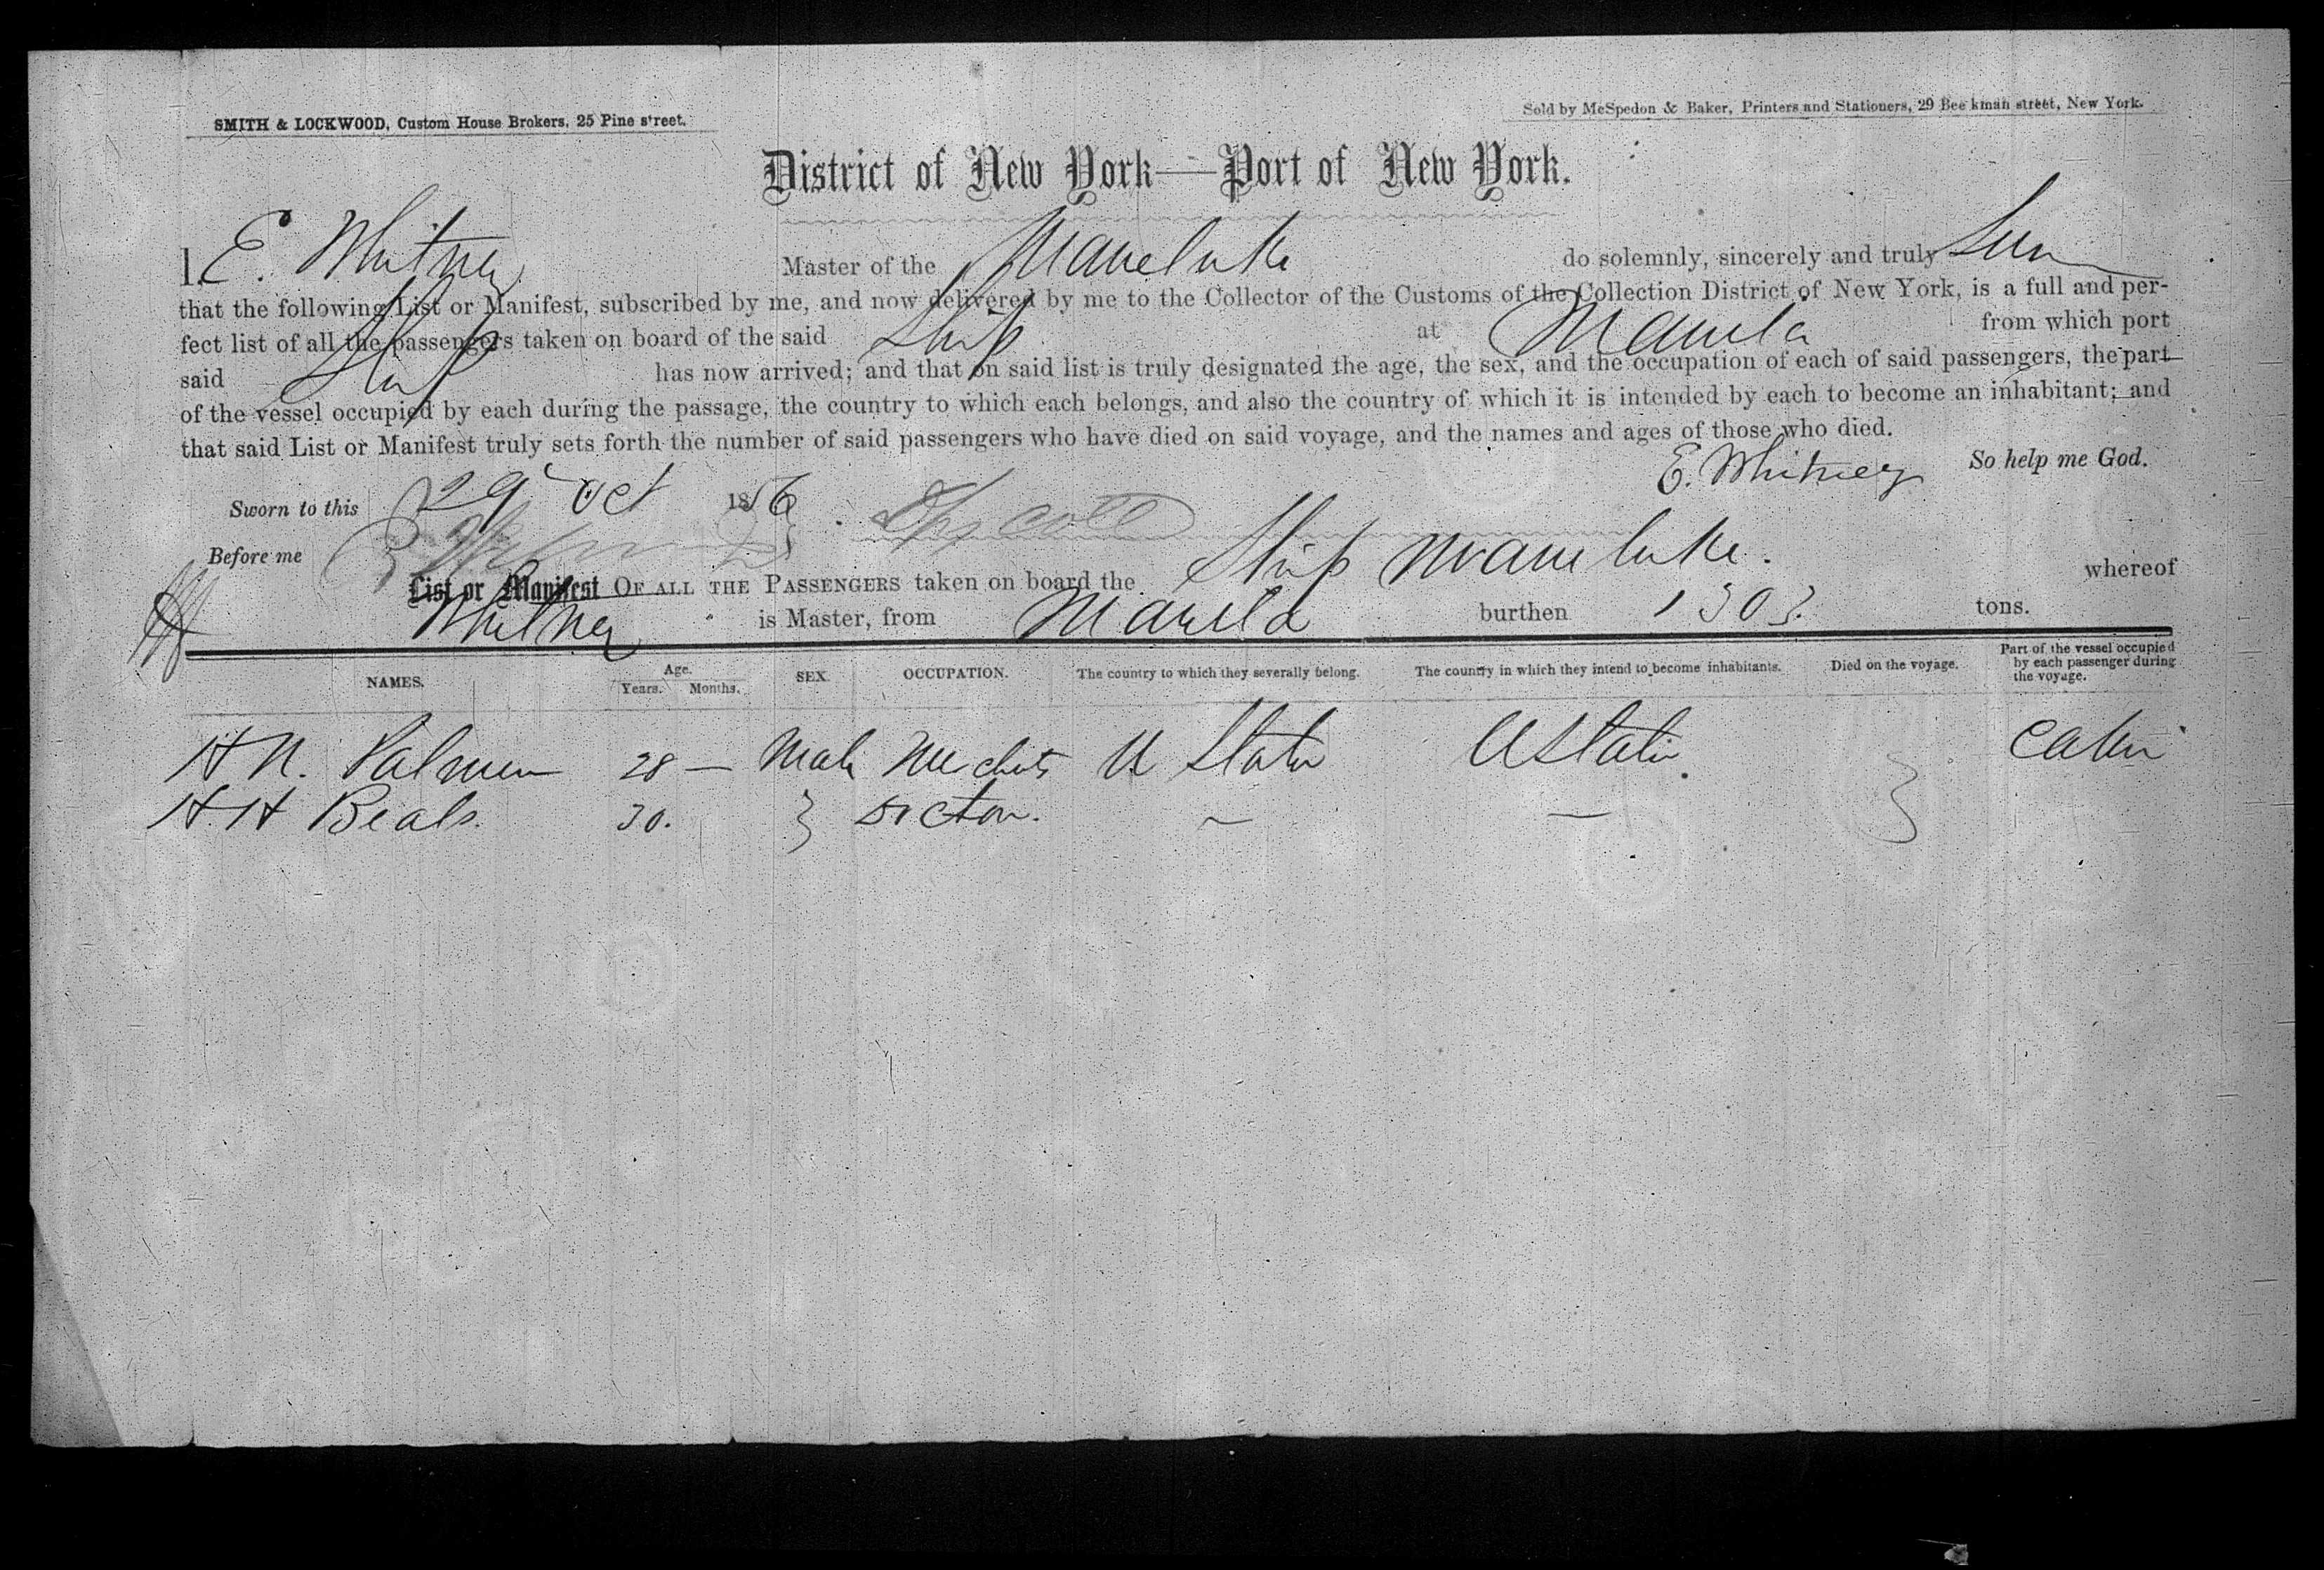 SMITH & LOCKWOOD, Custom House Brokers, 25 Pine street.
Sold by McSpedon & Baker, Printers and Stationers, 29 Beekman street, New York.
District of New York—Port of New York.
I, E. Whitney Master of the Mameluke do solemnly, sincerely and truly
that the following List or Manifest, subscribed by me, and now delivered by me to the Collector of the Customs of the Collection District of New York, is a full and per-
fect list of all the passengers taken on board of the said Ship at Manila from which port
said Ship has now arrived; and that on said list is truly designated the age, the sex, and the occupation of each of said passengers, the part
of the vessel occupied by each during the passage, the country to which each belongs, and also the country of which it is intended by each to become an inhabitant; and
that said List or Manifest truly sets forth the number of said passengers who have died on said voyage, and the names and ages of those who died.
E. Whitney So help me God.
Sworn to this 29 Oct 1856
Before me
List or Manifest OF ALL THE PASSENGERS taken on board the Ship Mameluke. whereof
Whitney is Master, from Manila burthen 1303 tons.
NAMES. Age. Years. Months. SEX. OCCUPATION. The country to which they severally belong. The country in which they intend to become inhabitants. Died on the voyage. Part of the vessel occupied by each passenger during the voyage.
H N. Palmer 28 — Male U States U States Cabin
H. H Beals. 30. } — — }